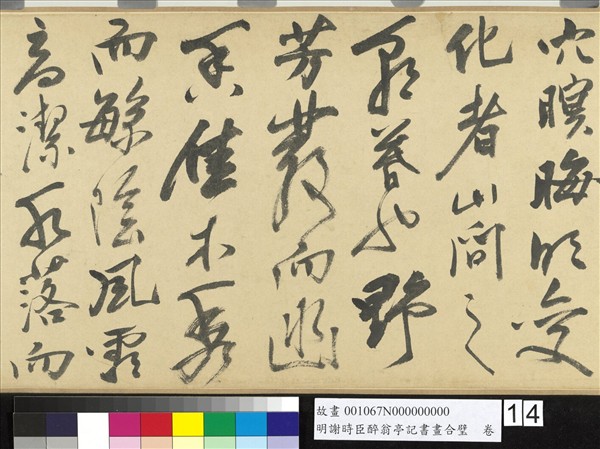 穴暝晦明變
化者山間之
朝暮也野
芳發而幽
香佳木秀
而繁陰風霜
高潔水落而
故畫 001067N000000000
明謝時臣醉翁亭記書畫合璧 卷
14